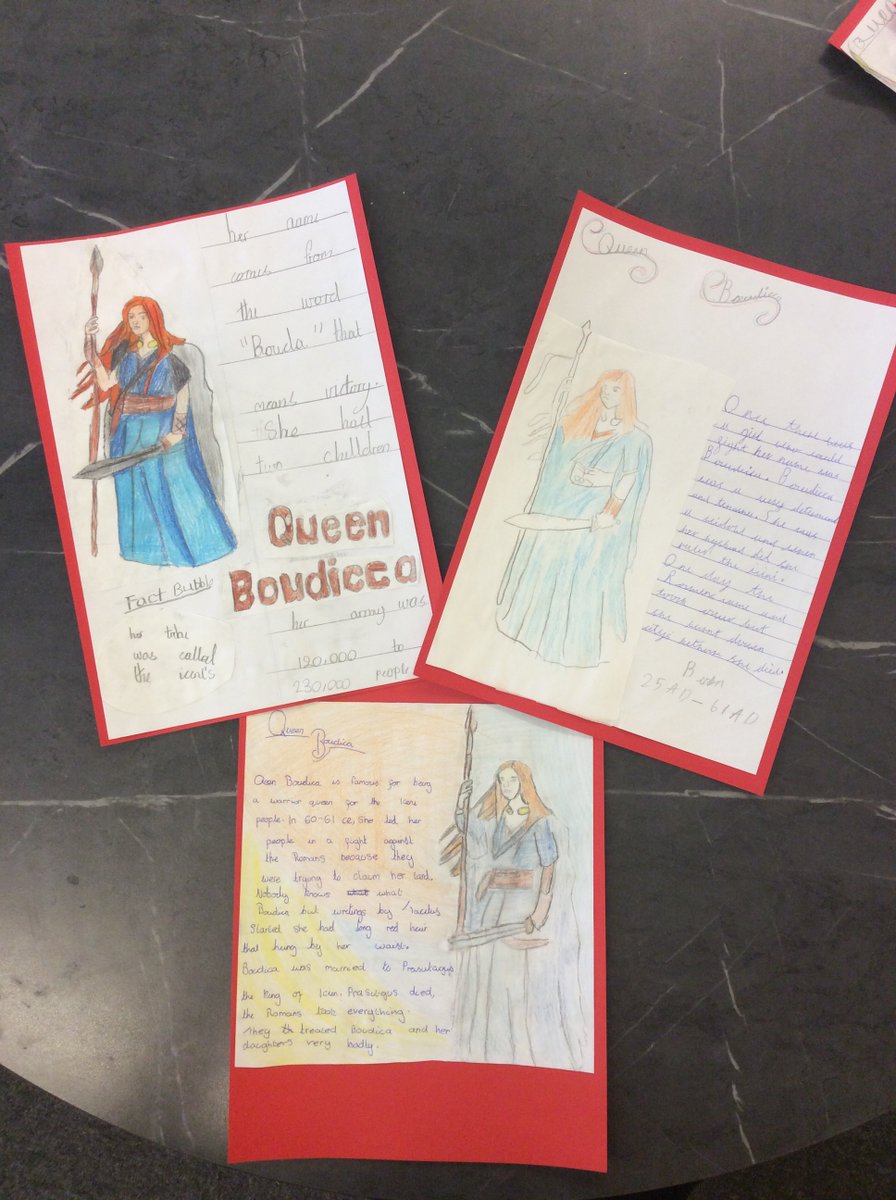 her name
comes from
the word
"Bouda" that
means victory.
She had
two chilldren
Queen
Boudicca
Fact Bubble
her tribe
was called
the iceni's
her army was
120,000 to
230,000 people
Queen
Boudicca
Once there was
a girl who could
fight her name was
Boudicca. Boudicca
was a very determined
and She was
a widow and when
her husband did she
ruled the iceni.
One day the
Romans came and
took over but
she went down
she died.
Born
25AD-61AD
Queen
Boudica
Qeen Boudica is famous for being
a warrior queen for the Iceni
people. In 60-61 ce, She led her
people in a fight against
the Romans because they
were trying to claim her land.
Nobody knows what what
Boudica but writings by Tacitus
Started she had long red hair
that hung by her waist.
Boudica was married to Prasutagus
the King of Icen. Prasutigus died,
the Romans took everything.
They th treated Boudica and her
daughters very badly.